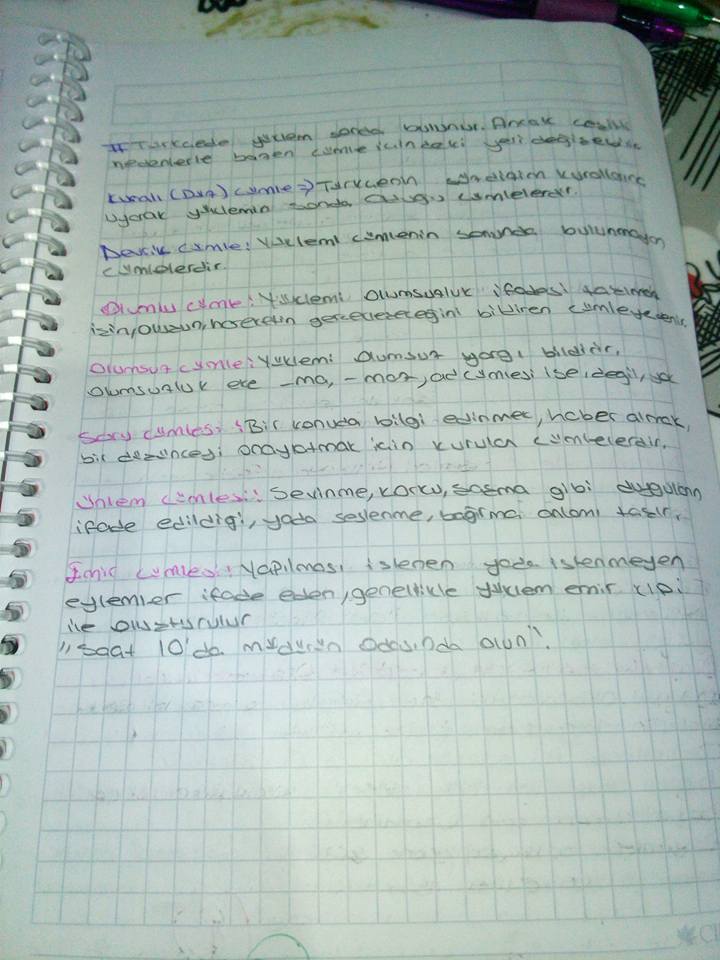 # Türkçede yüklem sonda bulunur. Ancak çeşitli
nedenlerle bazen cümle içindeki yeri değişebilir.
Kurallı (Düz) Cümle => Türkçenin kurallarına
uyarak yüklemin sonda cümlelerdir.
Devrik Cümle: Yüklemi cümlenin sonunda bulunmayan
cümlelerdir.
Olumlu cümle: Yüklemi olumsuzluk ifadesi taşımayan
hareketin gerçekleşeceğini bildiren
Olumsuz cümle: Yüklemi olumsuz yargı bildirir.
olumsuzluk eke -ma, -maz, ad cümlesi ise, değil, yok
Soru cümlesi: Bir konuda bilgi edinmek, haber almak,
bir düşünceyi onaylatmak için kurulan cümlelerdir.
Ünlem cümlesi: Sevinme, korku, şaşma gibi duyguların
ifade edildiği, yada seslenme, bağırma anlamı taşır.
Emir cümlesi: Yapılması istenen yada istenmeyen
eylemler ifade eden, genellikle yüklem emir kipi
ile oluşturulur
"Saat 10'da müdürün odasında olun".